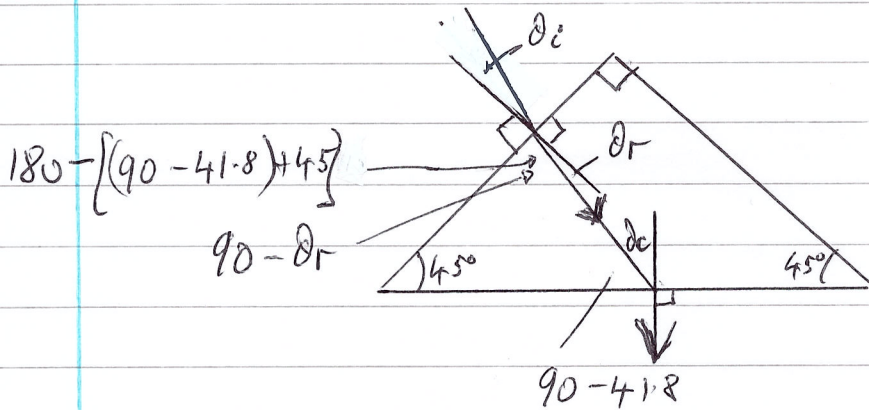 θi
180-[(90-41.8)+45]
θr
90-θr
θc
45°
45°
90-41.8